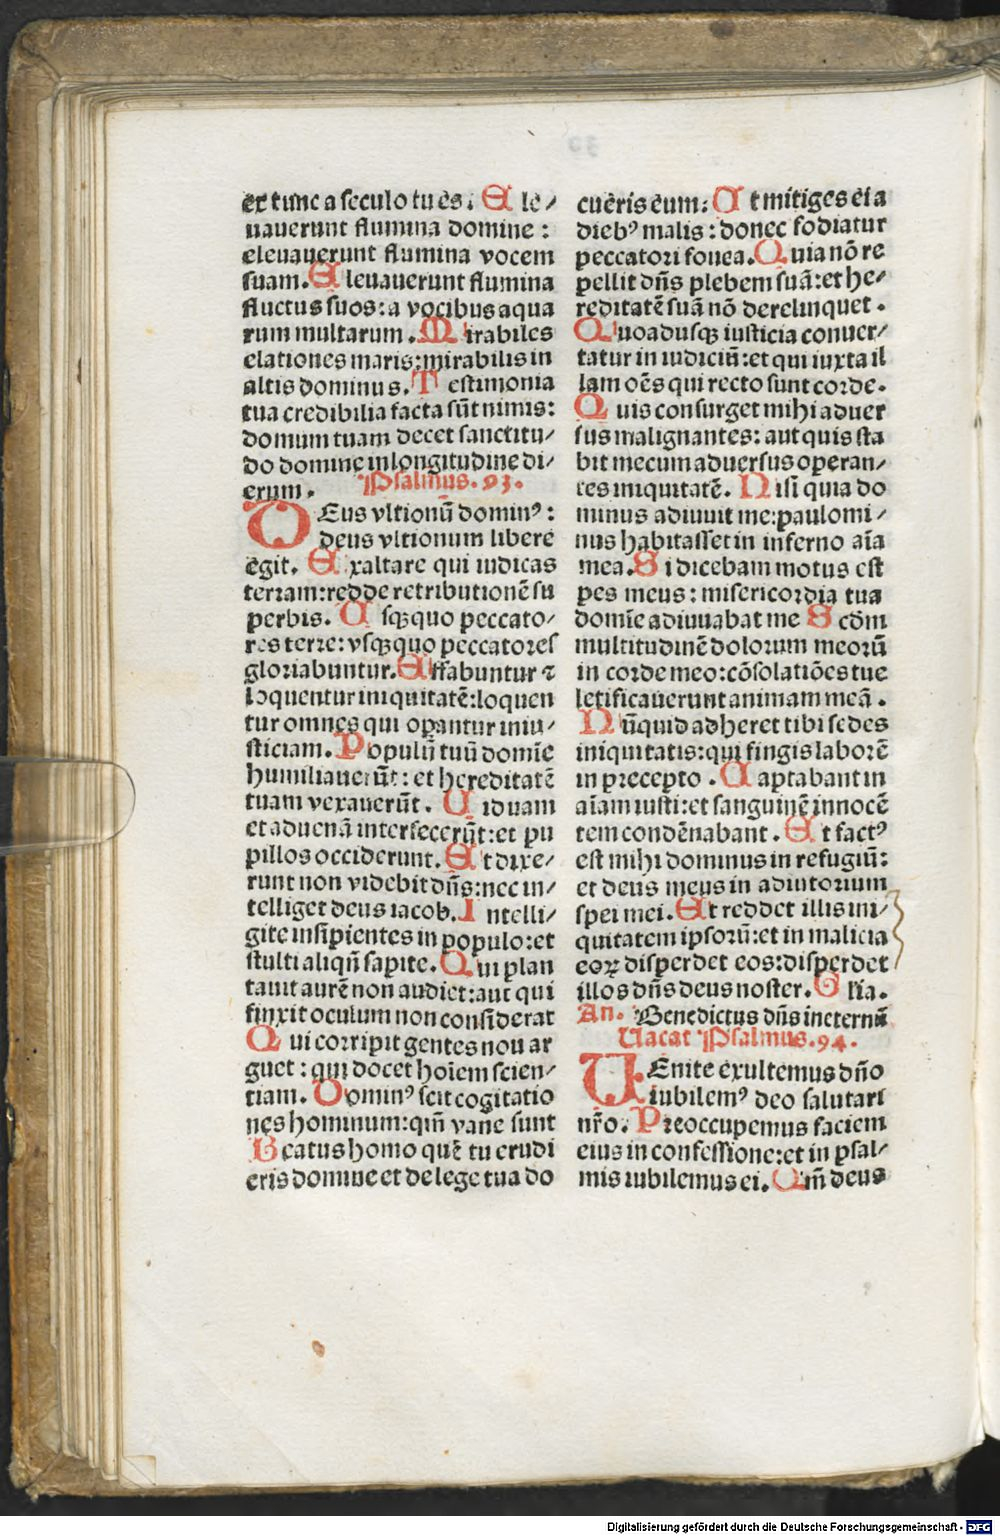 ex tunc a seculo tu es. Ele/
uauerunt flumina domine :
eleuauerunt flumina vocem
suam. Eleuauerunt flumina
fluctus suos: a vocibus aqua
rum multarum. Mirabiles
elationes maris: mirabilis in
altis dominus. Testimonia
tua credibilia facta sūt nimis:
domum tuam decet sanctitu/
do domine in longitudine di/
erum. Psalmus .93.
DEus vltionū dominꝰ :
deus vltionum libere
egit. Exaltare qui iudicas
terram: redde retributionē su
perbis. Usq̄quo peccato/
res terre: vsq̄quo peccatores
gloriabuntur. Effabuntur ⁊
loquentur iniquitatē: loquen
tur omnes qui oꝑantur iniu/
sticiam. Populū tuū domīe
humiliauerūt : et hereditatē
tuam vexauerūt. Uiduam
et aduenā interfecerūt: et pu
pillos occiderunt. Et dixe/
runt non videbit dn̄s: nec in/
telliget deus iacob. Intelli/
gite insipientes in populo: et
stulti aliqn̄ sapite. Qui plan
tauit aurē non audiet: aut qui
finxit oculum non considerat
Qui corripit gentes non ar
guet : qui docet hoīem scien/
tiam. Dominꝰ scit cogitatio
nes hominum: qm̄ vane sunt
Beatus homo quē tu erudi
eris domine et de lege tua do
cuēris eum: Ut mitiges ei a
diebꝰ malis : donec fodiatur
peccatori fouea. Quia nō re
pellit dn̄s plebem suā: et he/
reditatē suā nō derelinquet .
Quoadusq̄ iusticia conuer/
tatur in iudiciū: et qui iuxta il
lam oēs qui recto sunt corde.
Quis consurget mihi aduer
sus malignantes: aut quis sta
bit mecum aduersus operan/
tes iniquitatē. Nisi quia do
minus adiuuit me: paulomi/
nus habitasset in inferno aīa
mea. Si dicebam motus est
pes meus : misericordia tua
domīe adiuuabat me Scd̄m
multitudinē dolorum meorū
in corde meo: cōsolatiōes tue
letificauerunt animam meā .
Nūquid adheret tibi sedes
iniquitatis: qui fingis laborē
in precepto . Captabant in
aīam iusti: et sanguinē innocē
tem condēnabant . Et factꝰ
est mihi dominus in refugiū:
et deus meus in adiutorium
spei mei. Et reddet illis ini/
quitatem ipsorū: et in malicia
eoꝝ disperdet eos: disperdet
illos dn̄s deus noster. Glīa.
An. Benedictus dn̄s in eternū
Uacat Psalmus .94.
UEnite exultemus dn̄o
iubilemꝰ deo salutari
nr̄o. Preoccupemus faciem
eius in confessione: et in psal/
mis iubilemus ei. Qm̄ deus
Digitalisierung gefördert durch die Deutsche Forschungsgemeinschaft - DFG